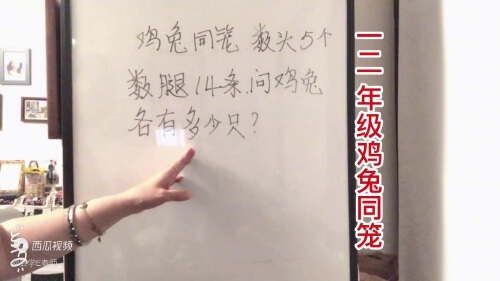 鸡兔同笼 数头5个
数腿14条,问鸡兔
各有多少只?
一二年级鸡兔同笼
西瓜视频